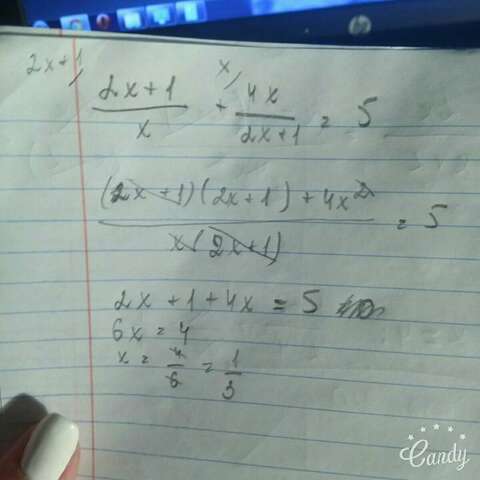 2x+1
x
2x+1/x + 4x/2x+1 = 5
(2x+1)(2x+1)+4x²/x(2x+1) = 5
2x+1+4x=5
6x=4
x=4/6=1/3
Candy